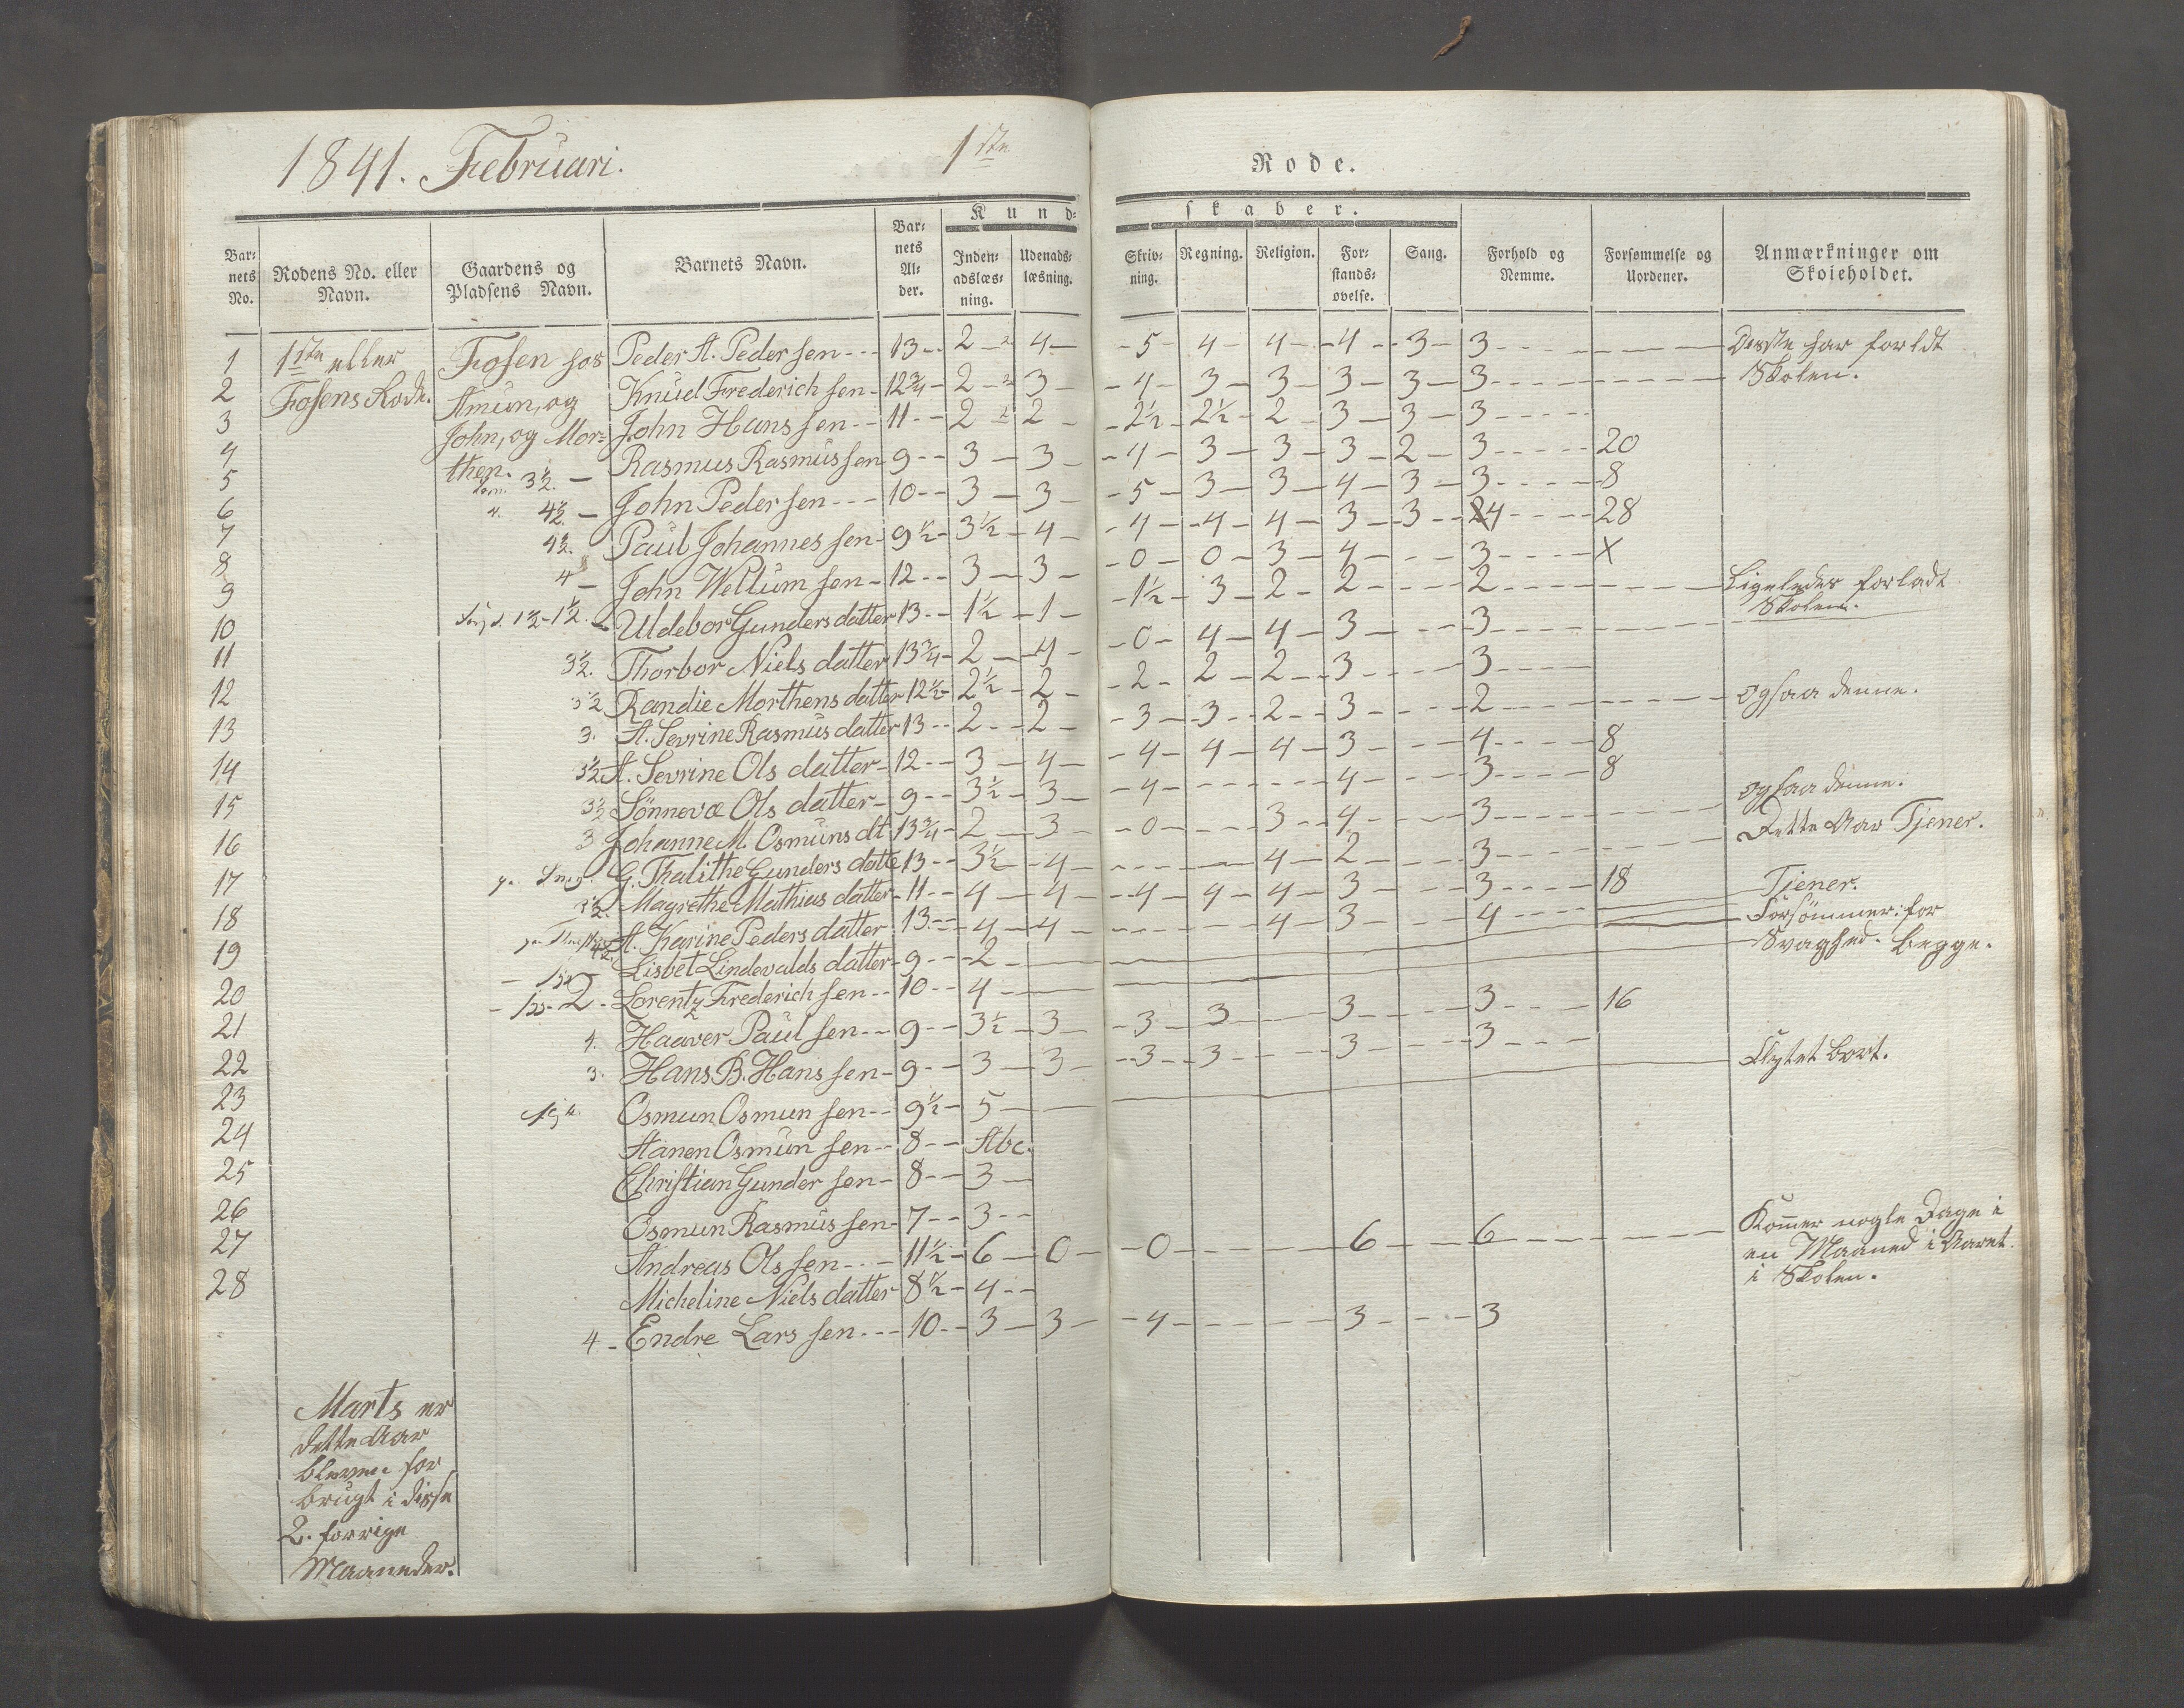 1841. Februari. 1ste Rode.
Kund- skaber.
Bar- nets No. Rodens No. eller Navn. Gaardens og Pladsens Navn. Barnets Navn. Bar- nets Al- der. Inden- adslæs- ning. Udenads- læsning. Skriv- ning. Regning. Religion. For- stands- øvelse. Sang. Forhold og Nemme. Forsømmelse og Uordener. Anmærkninger om Skoleholdet.
1 1ste eller Fosen hos Peder A. Pedersen 13 2 4 5 4 4 4 3 3 har forldt
2 Fosens Rode. Amun, og Knud Frederichsen 12 3/4 2 3 4 3 3 3 3 3 Skolen.
3 John, og Mor- John Hanssen 11 2 2 2 1/2 2 1/2 2 3 3 3
4 then. 3 1/2. Rasmus Rasmussen 9 3 3 4 3 3 3 2 3 20
5 4 1/2. John Pedersen 10 3 3 5 3 3 4 3 3 8
6 4 1/2. Paul Johannessen 9 1/2 3 1/2 4 4 4 4 3 3 4 28
7 4 John Wellumsen 12 3 3 0 0 3 4 3 X
8 1 1/2 - 1 1/2. Uldebor Gundersdatter 13 1 1/2 1 1 1/2 3 2 2 2 Ligeledes forladt
Skolen.
9 3 1/2. Thorbor Nielsdatter 13 3/4 2 4 0 4 4 3 3
10 3 1/2 Randie Morthensdatter 12 1/2 2 1/2 2 2 2 2 3 3
11 3. A. Sevrine Rasmusdatter 13 2 2 3 3 2 3 2 ogsaa denne.
12 3 1/2 A. Sevrine Olsdatter 12 3 4 4 4 4 3 4 8
13 3 1/2 Sönneva Olsdatter 9 3 1/2 3 4 4 3 8
14 3 Johanne M. Osmuns dt 13 3/4 2 3 0 3 4 3 ogsaa denne.
15 G. Thalithe Gunders datte 13 3 1/2 4 4 2 3 Dette Aar Tjener.
16 Magrethe Mathiasdatter 11 4 4 4 4 4 3 3 18
17 A. Karine Pedersdatter 13 4 4 4 3 4 Tjener.
18 Lisbet Lindevaldsdatter 9 2 Forsömmer: for
19 2 Lorentz Frederichsen 10 4 Svaghed. begge.
20 4. Haaver Paulsen 9 3 1/2 3 3 3 3 3 16
21 3. Hans B. Hanssen 9 3 3 3 3 3 3
22 Osmun Osmunsen 9 1/2 5 Flytet bort.
23 Aanen Osmunsen 8 Abc.
24 Christian Gundersen 8 3
25 Osmun Rasmussen 7 3
26 Andreas Olssen 11 1/2 6 0 0 6 6 Kommer nogle Dage i
en Maaned i Aaret
i Skolen.
27 Micheline Nielsdatter 8 1/2 4
28 4 Endre Larssen 10 3 3 4 3 3
Marts er
dette Aar
bleven for
brugt i disse
2. forrige
Maaneder.